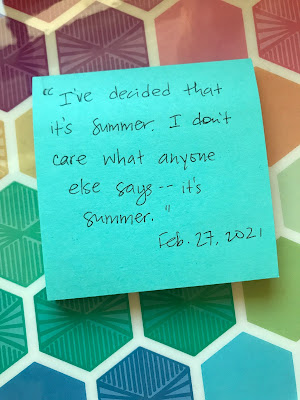 "I've decided that
it's summer. I don't
care what anyone
else says -- it's
summer."
Feb. 27, 2021